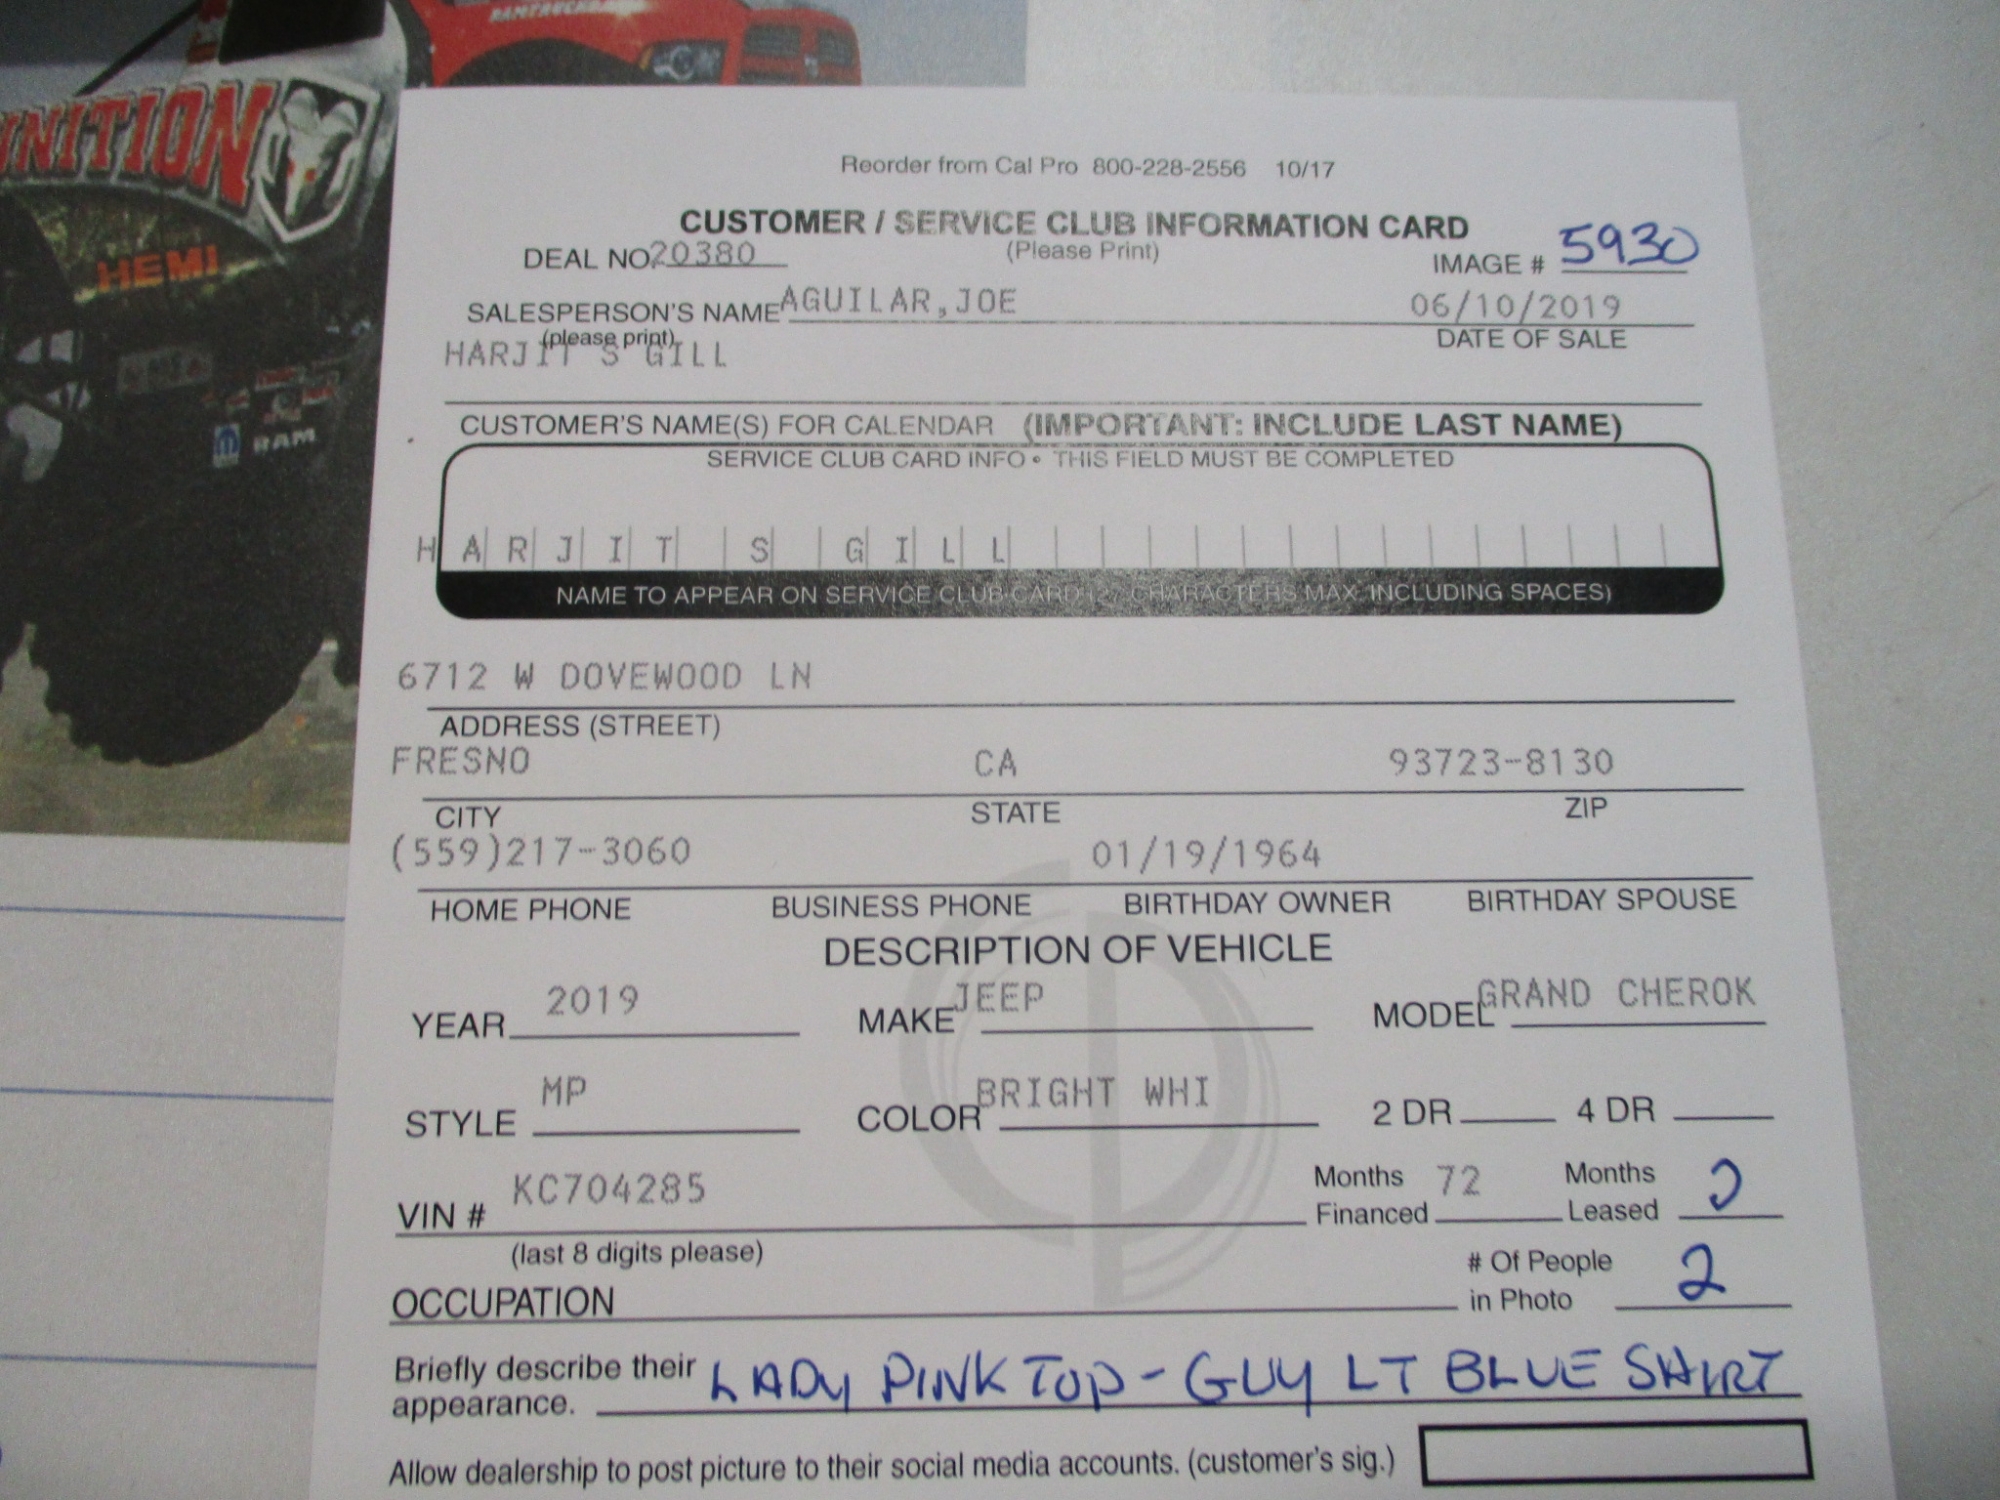 RAMTRUCKS.
UNITION
HEMI
RAM
Reorder from Cal Pro 800-228-2556 10/17
CUSTOMER / SERVICE CLUB INFORMATION CARD
DEAL NO. 20380 (Please Print) IMAGE # 5930
SALESPERSON'S NAME AGUILAR,JOE 06/10/2019
(please print) DATE OF SALE
HARJIT S GILL
CUSTOMER'S NAME(S) FOR CALENDAR (IMPORTANT: INCLUDE LAST NAME)
SERVICE CLUB CARD INFO • THIS FIELD MUST BE COMPLETED
HARJIT S GILL
NAME TO APPEAR ON SERVICE CLUB CARD (27 CHARACTERS MAX. INCLUDING SPACES)
6712 W DOVEWOOD LN
ADDRESS (STREET)
FRESNO CA 93723-8130
CITY STATE ZIP
(559)217-3060 01/19/1964
HOME PHONE BUSINESS PHONE BIRTHDAY OWNER BIRTHDAY SPOUSE
DESCRIPTION OF VEHICLE
YEAR 2019 MAKE JEEP MODEL GRAND CHEROK
STYLE MP COLOR BRIGHT WHI 2 DR 4 DR
VIN # KC704285 Months Financed 72 Months Leased
(last 8 digits please)
OCCUPATION # Of People in Photo 2
Briefly describe their appearance. LADY PINK TOP - GUY LT BLUE SHIRT
Allow dealership to post picture to their social media accounts. (customer's sig.)